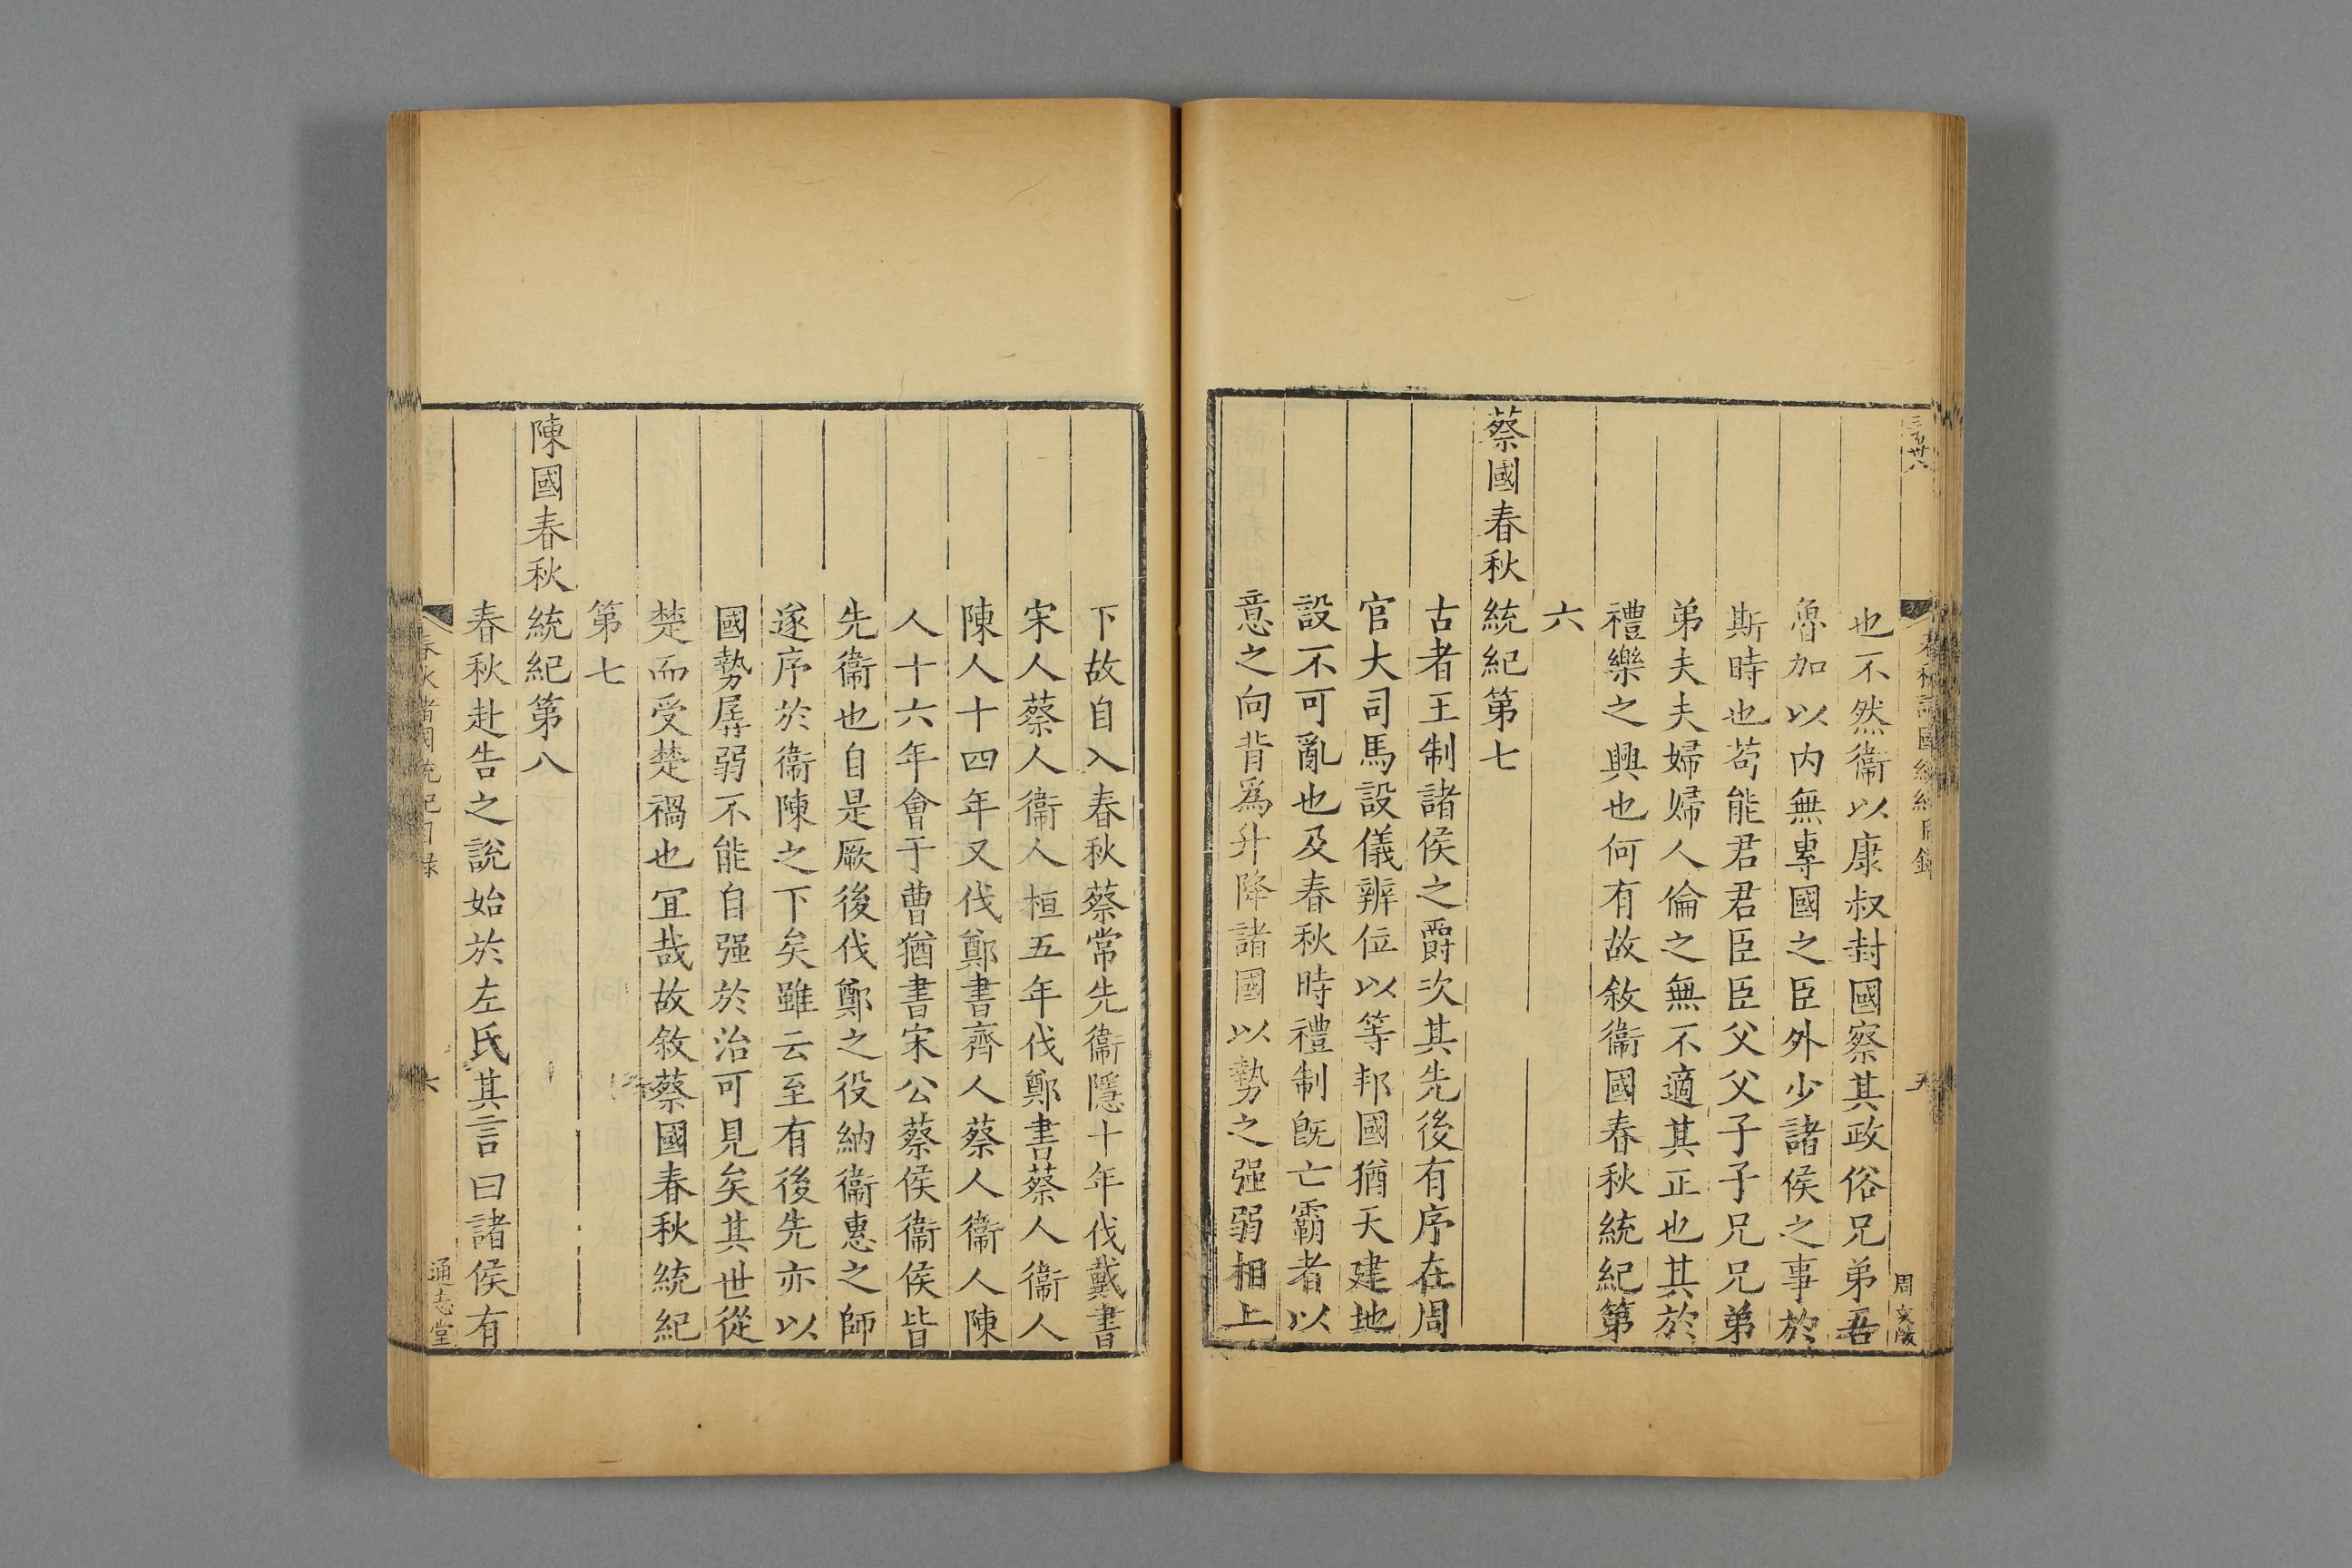 春秋諸國統紀目錄
五
周文
也不然衞以康叔封國察其政俗兄弟吾
魯加以内無專國之臣外少諸侯之事於
斯時也苟能君君臣臣父父子子兄兄弟
弟夫夫婦婦人倫之無不適其正也其於
禮樂之興也何有故敘衞國春秋統紀第
六
蔡國春秋統紀第七
古者王制諸侯之爵次其先後有序在周
官大司馬設儀辨位以等邦國猶天建地
設不可亂也及春秋時禮制旣亡霸者以
意之向背爲升降諸國以勢之强弱相上
下故自入春秋蔡常先衞隱十年伐戴書
宋人蔡人衞人桓五年伐鄭書蔡人衞人
陳人十四年又伐鄭書齊人蔡人衞人陳
人十六年會于曹猶書宋公蔡侯衞侯皆
先衞也自是厥後伐鄭之役納衞惠之師
遂序於衞陳之下矣雖云至有後先亦以
國勢孱弱不能自强於治可見矣其世從
楚而受楚禍也宜哉故敘蔡國春秋統紀
第七
陳國春秋統紀第八
春秋赴告之說始於左氏其言曰諸侯有
春秋諸國統紀目錄
六
通志堂